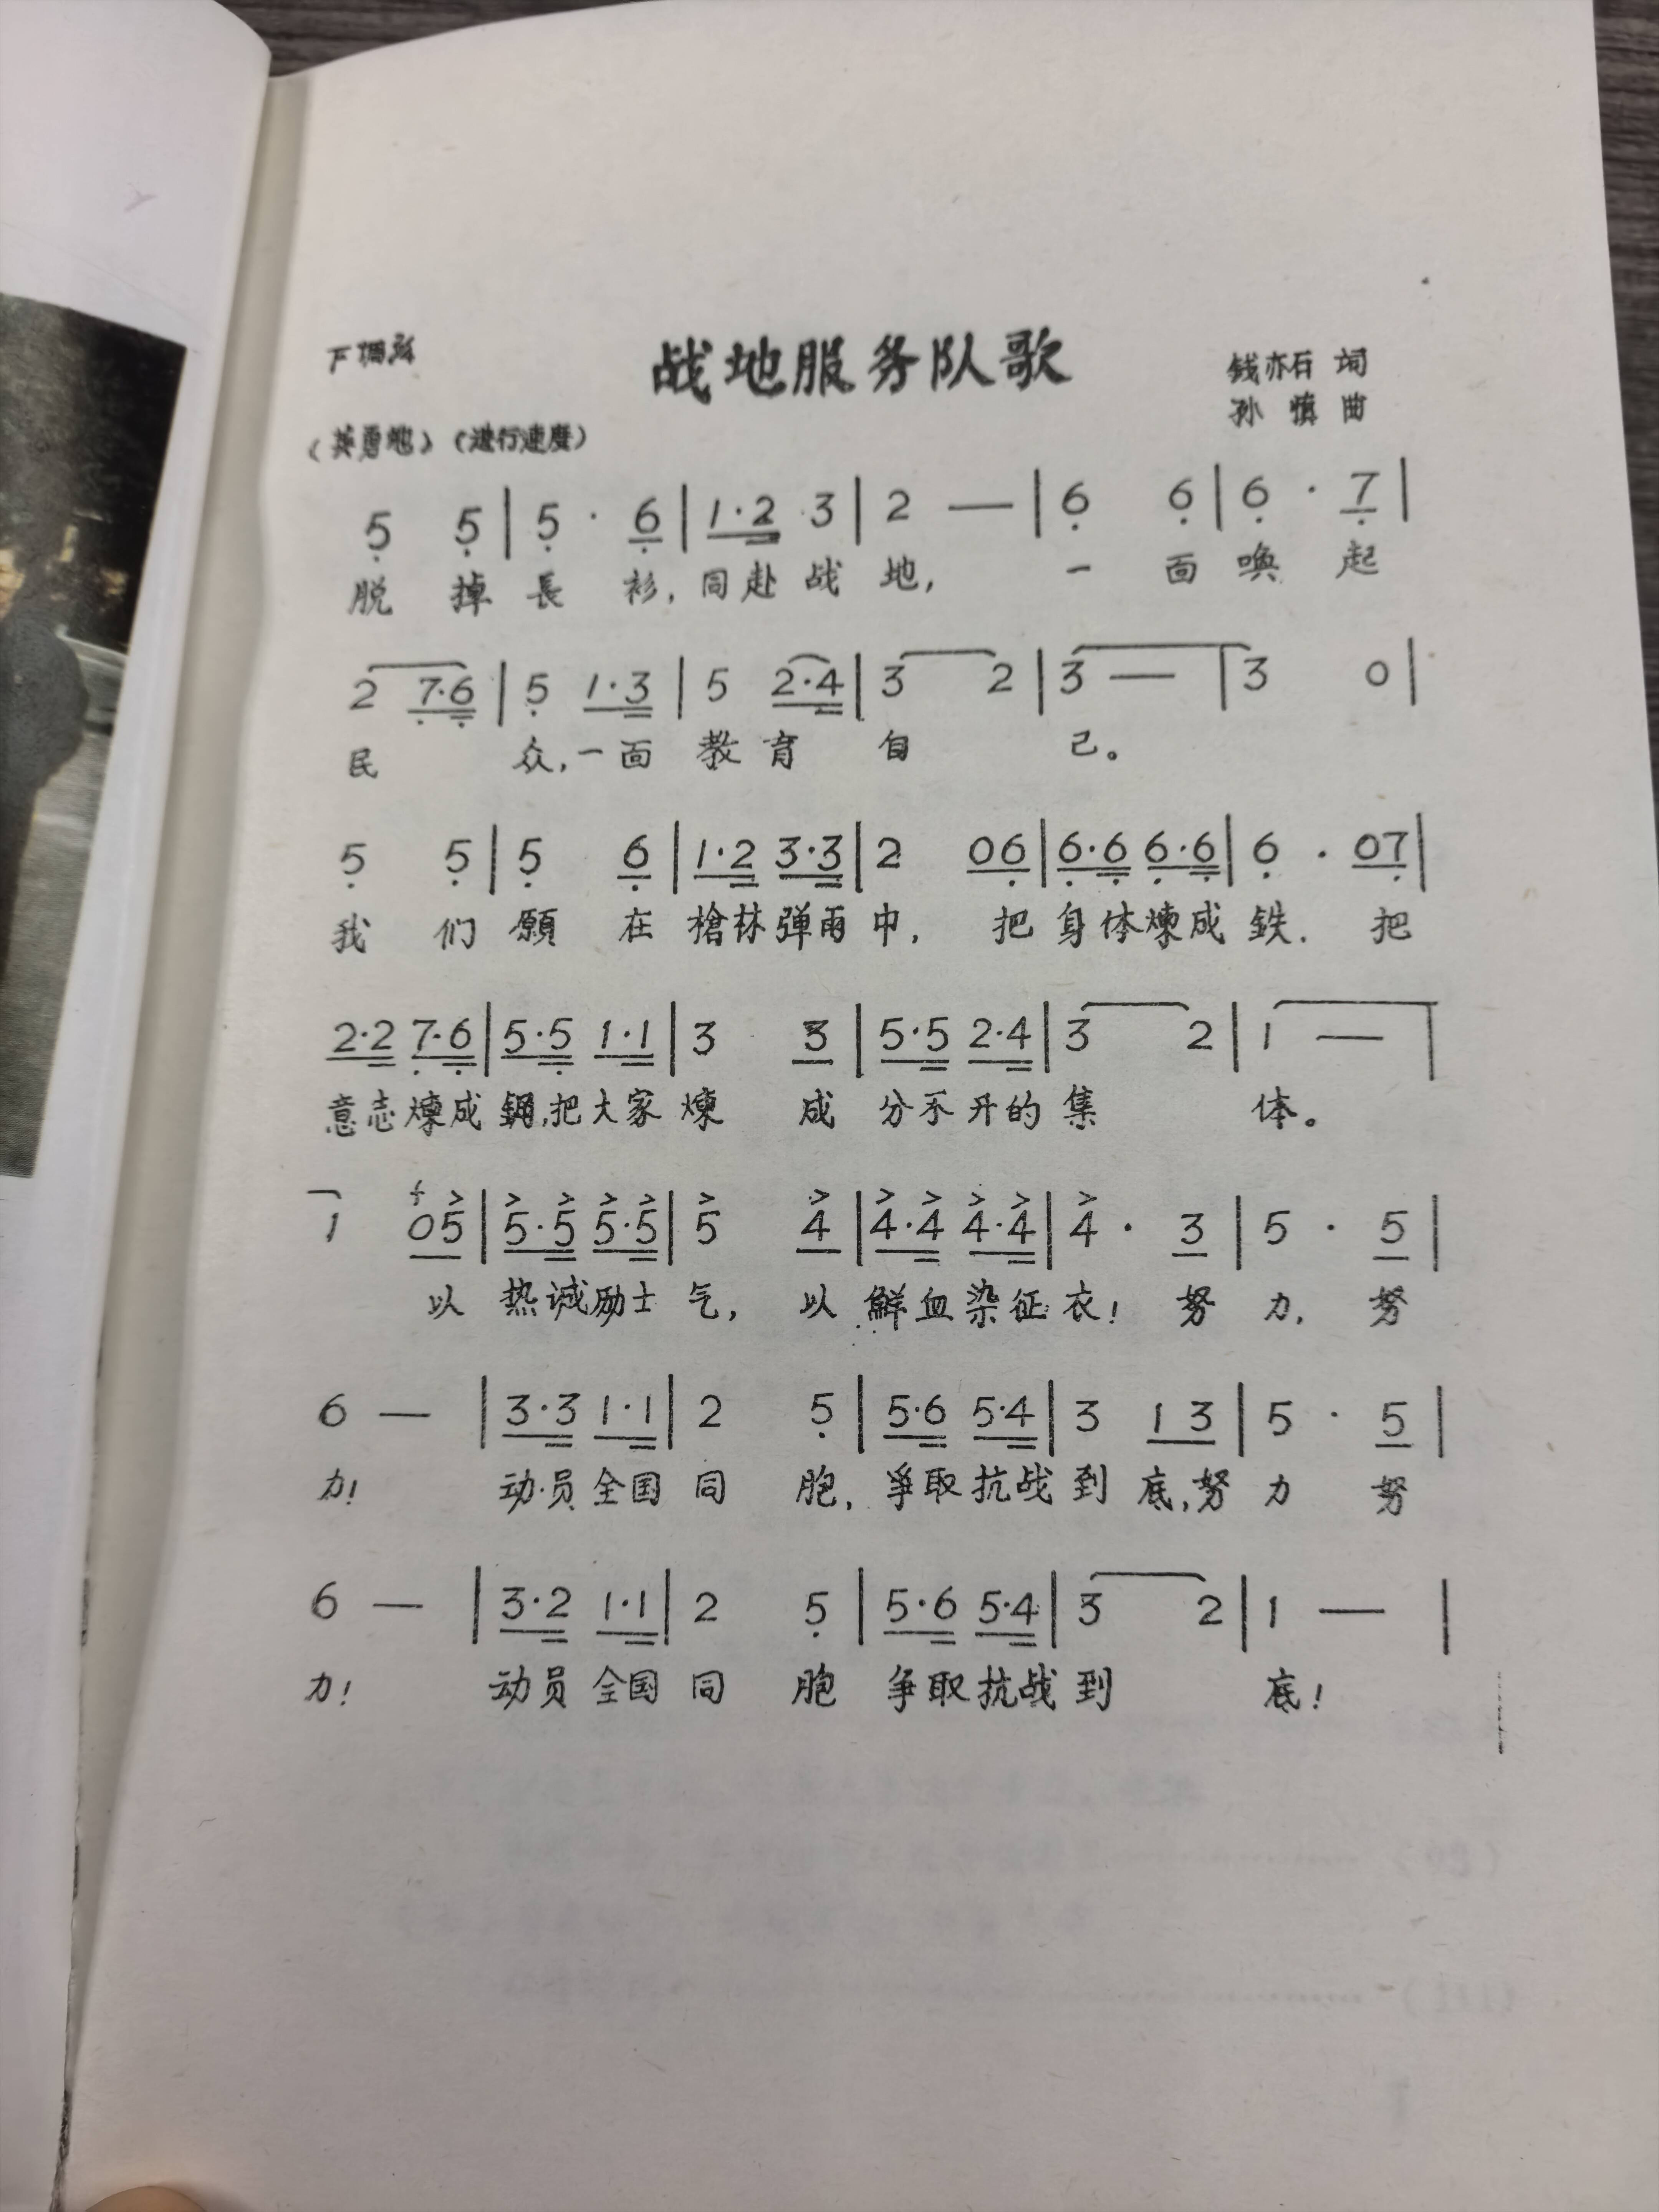 战地服务队歌
钱亦石 词
孙 慎 曲
(英勇地) (进行速度)
5 5 | 5 · 6 | 1·2 3 | 2 — | 6 6 | 6 · 7 |
脱 掉 長 衫, 同赴 战 地, 一 面 唤 起
2 7·6 | 5 1·3 | 5 2·4 | 3 2 | 3 — | 3 0 |
民 众, 一面 教 育 自 己。
5 5 | 5 6 | 1·2 3·3 | 2 06 | 6·6 6·6 | 6 · 07 |
我 们 願 在 槍林弹雨 中, 把 身体煉成 鉄. 把
2·2 7·6 | 5·5 1·1 | 3 3 | 5·5 2·4 | 3 2 | 1 — |
意志煉成 鋼,把大家 煉 成 分不开的 集 体。
1 05 | 5·5 5·5 | 5 4 | 4·4 4·4 | 4 · 3 | 5 · 5 |
以 热诚励士 气, 以 鮮血染征 衣! 努 力, 努
6 — | 3·3 1·1 | 2 5 | 5·6 5·4 | 3 1 3 | 5 · 5 |
力! 动员全国 同 胞, 爭取抗战 到 底,努 力 努
6 — | 3·2 1·1 | 2 5 | 5·6 5·4 | 3 2 | 1 — |
力! 动员全国 同 胞 争取抗战 到 底!